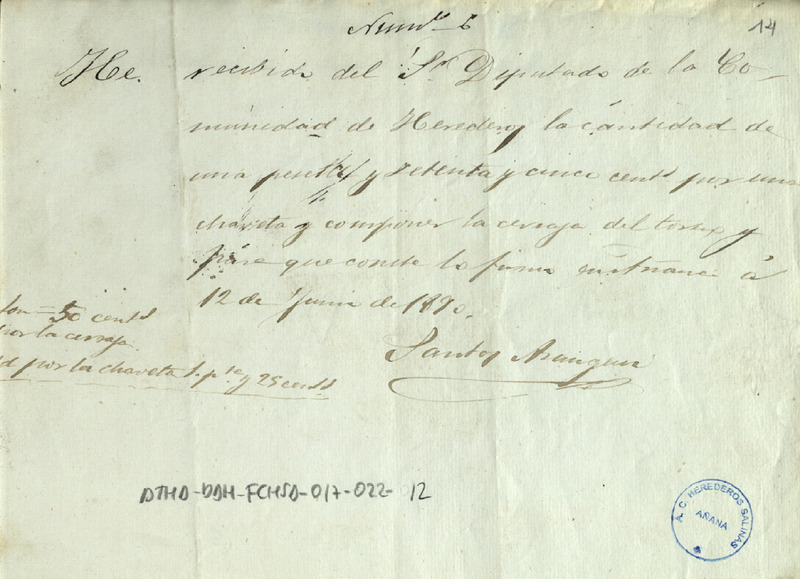 Num.º 6
14
He. recibido del Sr. Diputado de la Co-
munidad de Herederos la cantidad de
una peseta y setenta y cinco cents por una
chaveta y componer la cerraja del torno y
para que conste lo firmo en Añana á
12 de Junio de 1890.
Santos
50 cents
por la cerraja.
Id por la chaveta 1. pta y 25 cents
DTHA-DDH-FCHSD-017-022-12
A. C. HEREDEROS SALINAS
AÑANA